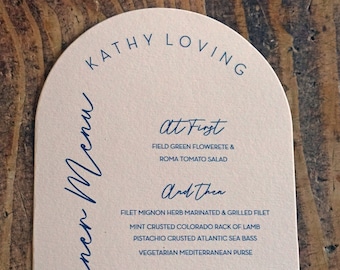 KATHY LOVING
At First
FIELD GREEN FLOWERETE &
ROMA TOMATO SALAD
And Then
FILET MIGNON HERB MARINATED & GRILLED FILET
MINT CRUSTED COLORADO RACK OF LAMB
PISTACHIO CRUSTED ATLANTIC SEA BASS
VEGETARIAN MEDITERRANEAN PURSE
Menu